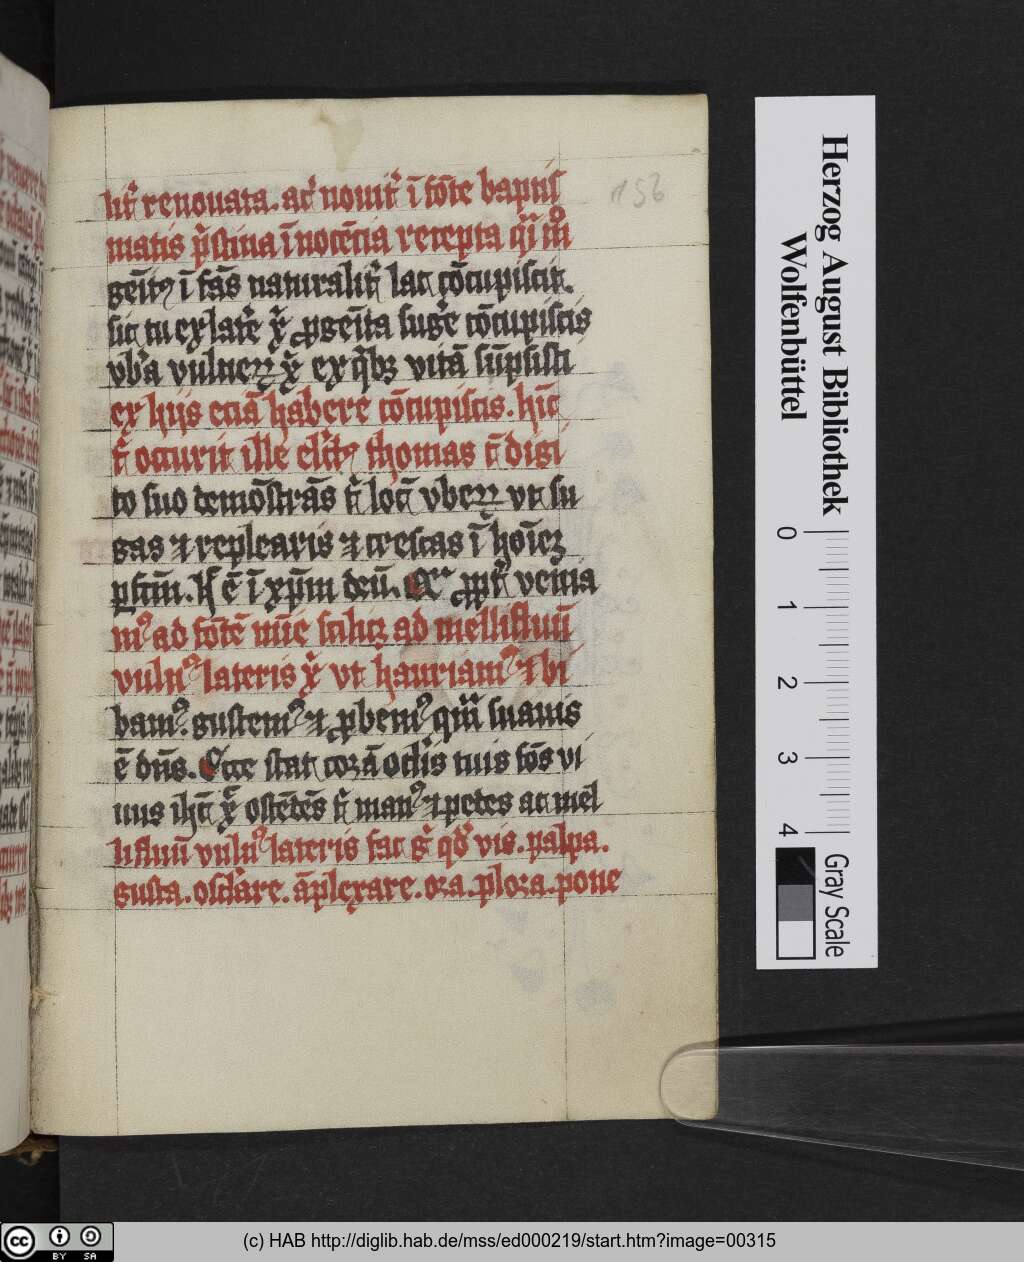 lit᷑ renouata. ac᷑ nouit᷑ ī fōte baptiſ
matis p᷑ſtina īnocēcia recepta qͥ m̄
gēit᷒ ī fās naturalit᷑ lac ꝯ̄cupiſcit.
ſic tu ex lat᷑e xͥ ꝓgēita ſug᷑e cōcupiſcis
vb᷑a vulneꝝ xͥ ex qͥbꝫ vitā ſūpſiſti
ex hijs eciā habere cōcupiſcis. hīc
t᷑ occurit ille thomas t᷑ digi
to ſuo demōſtrās t᷑ loc̄ vbeꝝ vt ſu
gas ⁊ replearis ⁊ creſcas ī
ꝑfcm̄. ē ī xp̄m deū.
ad fōtē ſcilicꝫ ad mellifluū
vuln᷒ lateris xͥ vt hauriam᷒ ⁊ bi
bam᷒. guſtem᷒ ⁊ ꝓbem᷒ qm̄ ſuauis
ē dn̄s. Ecce ſtat corā oclis tuis fōs vi
uus ih̄c xͥ oſtēdēs t᷑ man᷒ ⁊ pedes ac mel
lifluū vuln᷒ lateris fac g᷑ qd᷑ vis. palpa.
guſta. oſclare. āplexare. ora. plora. pone
156
Herzog August Bibliothek
Wolfenbüttel
0 1 2 3 4
Gray Scale
cc BY SA
(c) HAB http://diglib.hab.de/mss/ed000219/start.htm?image=00315